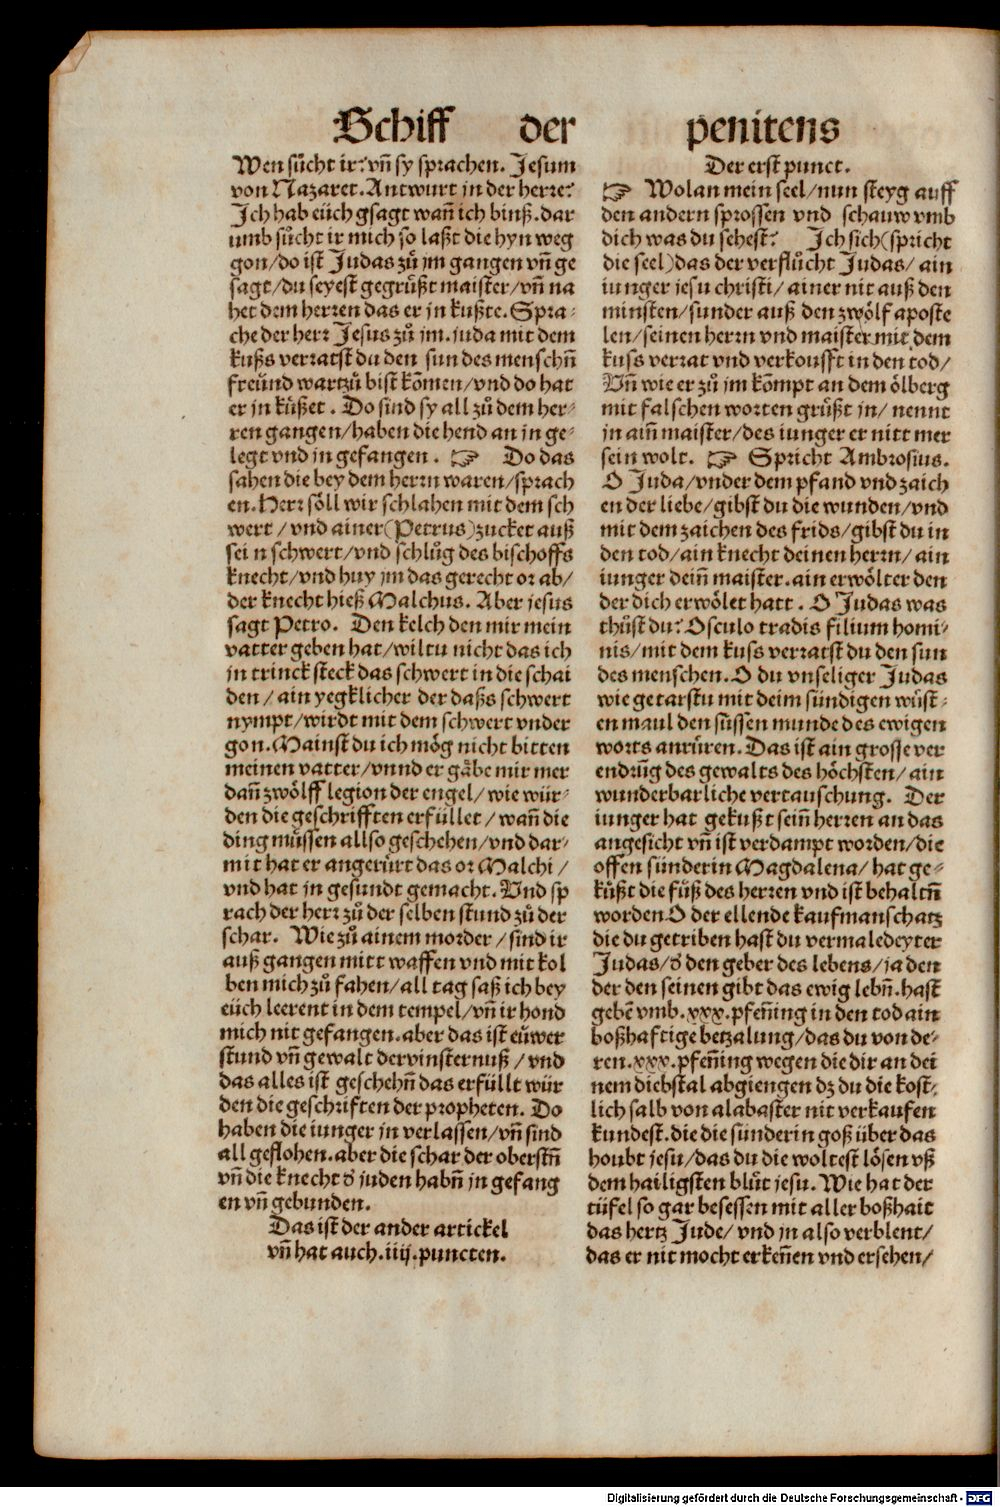 Schiff der penitens
Wen sůcht ir? vñ sy sprachen. Jesum
von Nazaret. Antwurt jn der herre?
Jch hab eüch gsagt wañ ich binß. dar
umb sůcht ir mich so laßt die hyn weg
gon/do ist Judas zů jm gangen vñ ge
sagt/du seyest gegrüßt maister/vñ na
het dem herren das er jn kußte. Spra⸗
che der herr Jesus zů jm. juda mit dem
kußs verratst du den sun des menschñ
freünd wartzů bist kõmen/vnd do hat
er jn küßet. Do sind sy all zů dem her⸗
ren gangen/haben die hend an jn ge⸗
legt vnd jn gefangen. ☞ Do das
sahen die bey dem herrn waren/sprach
en. Herr söll wir schlahen mit dem sch
wert/vnd ainer(Petrus)zucket auß
sei n schwert/vnd schlůg des bischoffs
knecht/vnd huy jm das gerecht or ab/
der knecht hieß Malchus. Aber jesus
sagt Petro. Den kelch den mir mein
vatter geben hat/wiltu nicht das ich
jn trinck steck das schwert in die schai
den/ain yegklicher der daßs schwert
nympt/wirdt mit dem schwert vnder
gon. Mainst du ich mög nicht bitten
meinen vatter/vnnd er gäbe mir mer
dañ zwölff legion der engel/wie wür⸗
den die geschrifften erfüllet/wañ die
ding müssen allso geschehen/vnd dar⸗
mit hat er angerürt das or Malchi/
vnd hat jn gesundt gemacht. Vnd sp
rach der herr zů der selben stund zů der
schar. Wie zů ainem morder/sind ir
auß gangen mitt waffen vnd mit kol
ben mich zů fahen/all tag saß ich bey
eüch leerent in dem tempel/vñ ir hond
mich nit gefangen. aber das ist eüwer
stund vñ gewalt der vinsternuß/vnd
das alles ist geschehñ das erfüllt wür
den die geschriften der propheten. Do
haben die iunger jn verlassen/vñ sind
all geflohen. aber die schar der oberstñ
vñ die knecht ď juden habñ jn gefang
en vñ gebunden.
Das ist der ander artickel
vñ hat auch .iiij. puncten.
Der erst punct.
☞ Wolan mein seel/nun steyg auff
den andern sprossen vnd schauw vmb
dich was du sehest? Jch sich(spricht
die seel)das der verflůcht Judas/ain
iunger jesu christi/ainer nit auß den
minsten/sunder auß den zwölf aposte
len/seinen herrn vnd maister mit dem
kuss verrat vnd verkoufft in den tod/
Vñ wie er zů jm kõmpt an dem ölberg
mit falschen worten grüßt jn/nennt
jn aiñ maister/des iunger er nitt mer
sein wolt. ☞ Spricht Ambrosius.
O Juda/vnder dem pfand vnd zaich
en der liebe/gibst du die wunden/vnd
mit dem zaichen des frids/gibst du in
den tod/ain knecht deinen herrn/ain
iunger deiñ maister. ain erwölter den
der dich erwölet hatt. O Judas was
thůst du? Osculo tradis filium homi⸗
nis/mit dem kuss verratst du den sun
des menschen. O du vnseliger Judas
wie getarstu mit deim sündigen wüst⸗
en maul den süssen munde des ewigen
worts anrüren. Das ist ain grosse ver
endrũg des gewalts des höchsten/ain
wunderbarliche vertauschung. Der
iunger hat gekußt seiñ herren an das
angesicht vñ ist verdampt worden/die
offen sünderin Magdalena/hat ge⸗
küßt die füß des herren vnd ist behaltñ
worden. O der ellende kaufmanschatz
die du getriben hast du vermaledeyter
Judas/ď den geber des lebens/ja den
der den seinen gibt das ewig lebñ. hast
gebẽ vmb .xxx. pfeñing in den tod ain
boßhaftige betzalung/das du von de⸗
ren .xxx. pfeñing wegen die dir an dei
nem diebstal abgiengen dz du die kost⸗
lich salb von alabaster nit verkaufen
kundest. die die sünderin goß über das
houbt jesu/das du die woltest lösen vß
dem hailigsten blůt jesu. Wie hat der
tüfel so gar besessen mit aller boßhait
das hertz Jude/vnd jn also verblent/
das er nit mocht erkeñen vnd ersehen/
Digitalisierung gefördert durch die Deutsche Forschungsgemeinschaft - DFG